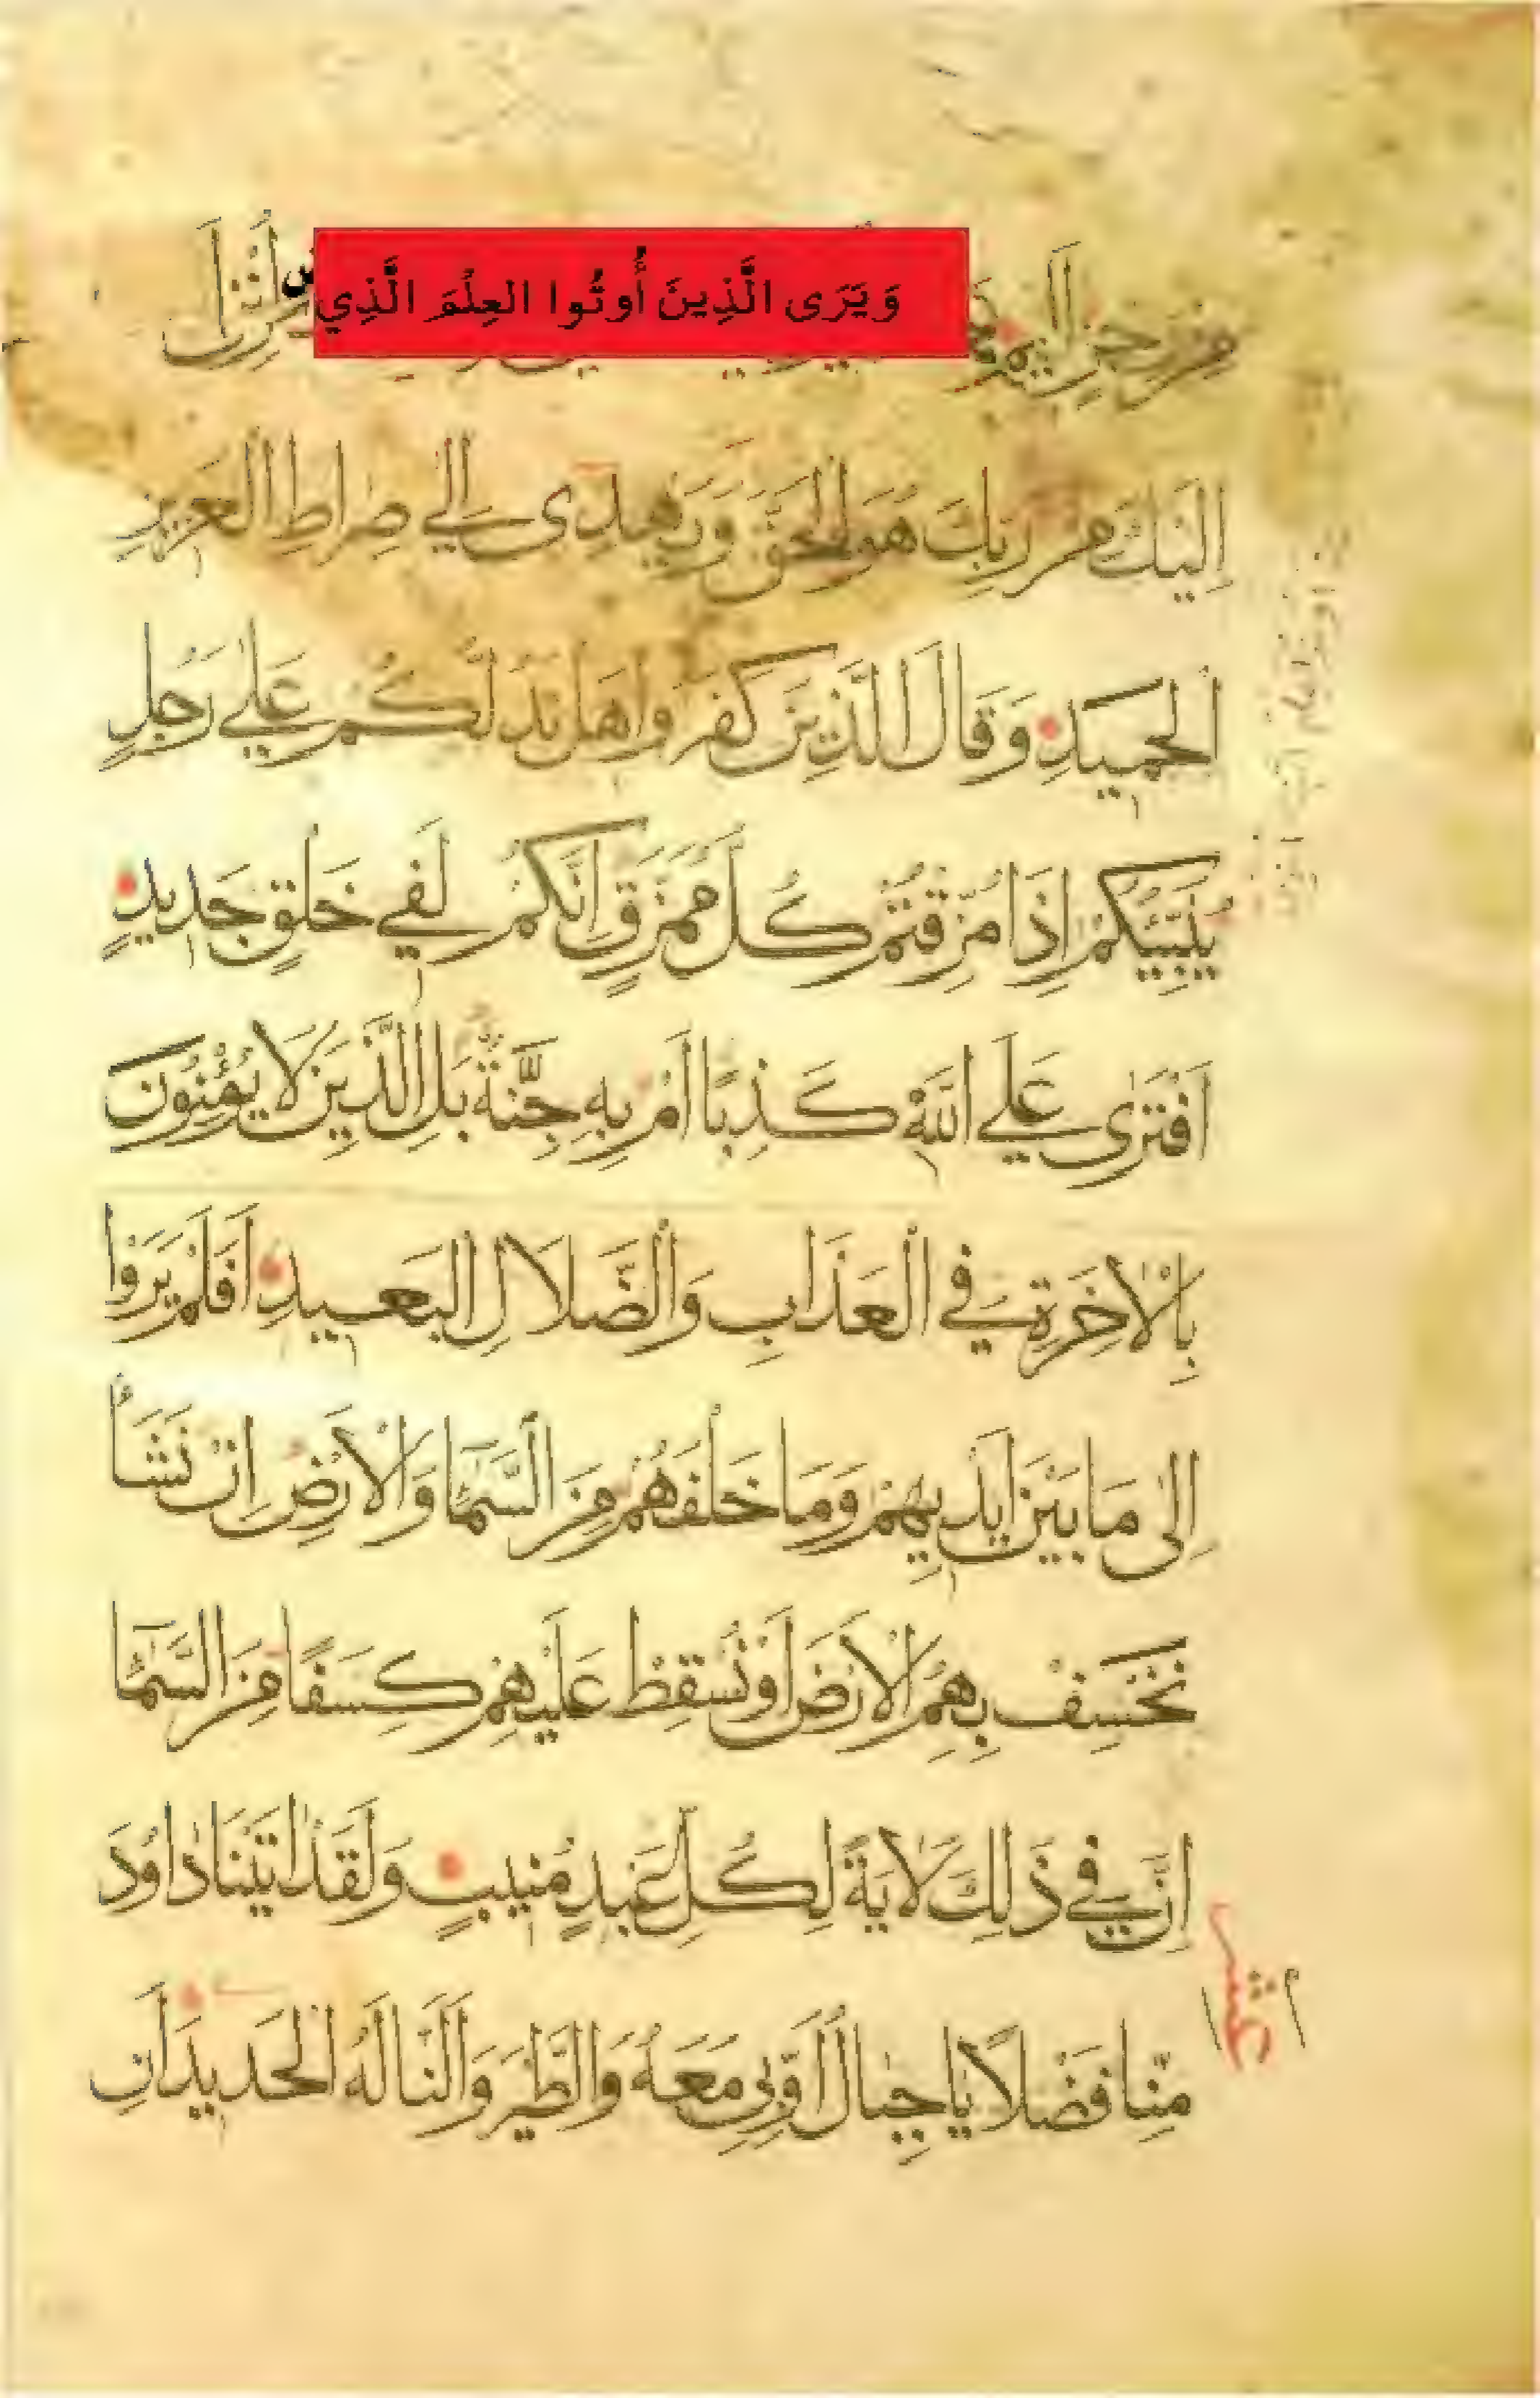 مِن رِجْزٍ اَلِيمٌ وَيَرَى الَّذِينَ أُوتُوا العِلْمَ الَّذِي اُنْزِلَ
اِلَيْكَ مِنْ رَبِّكَ هُوَ الْحَقَّ وَيَهْدِى اِلَى صِرَاطِ الْعَزِيزِ
الْحَمِيدِ وَقَالَ الَّذِينَ كَفَرُوا هَلْ نَدُلُّكُمْ عَلَى رَجُلٍ
يُنَبِّئُكُمْ اِذَا مُزِّقْتُمْ كُلَّ مُمَزَّقٍ اِنَّكُمْ لَفِي خَلْقٍ جَدِيدٍ
اَفْتَرَى عَلَى اللَّهِ كَذِبًا اَمْ بِهِ جِنَّةٌ بَلِ الَّذِينَ لَا يُؤْمِنُونَ
بِالْاخِرَةِ فِي الْعَذَابِ وَالضَّلَالِ الْبَعِيدِ اَفَلَمْ يَرَوْا
اِلَى مَا بَيْنَ اَيْدِيهِمْ وَمَا خَلْفَهُمْ مِنَ السَّمَآءِ وَالْاَرْضِ اِنْ نَشَأْ
نَخْسِفْ بِهِمُ الْاَرْضَ اَوْ نُسْقِطْ عَلَيْهِمْ كِسَفًا مِنَ السَّمَآءِ
اِنَّ فِي ذَلِكَ لَايَةً لِكُلِّ عَبْدٍ مُنِيبٍ وَلَقَدْ اتَيْنَا دَاوُدَ
مِنَّا فَضْلًا يَا جِبَالُ اَوِّبِي مَعَهُ وَالطَّيْرَ وَاَلَنَّا لَهُ الْحَدِيدَ اَنِ